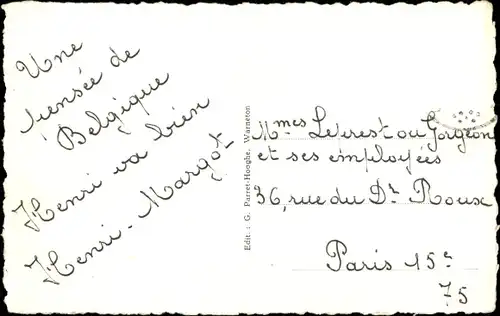 Une
pensée de
Belgique
Henri va bien
Henri - Margot
Edit. : G. Parret-Hooghe, Warneton
Mmes Leprest ou Gorgeon
et ses employées
36, rue du Dr Roux
Paris 15e
75